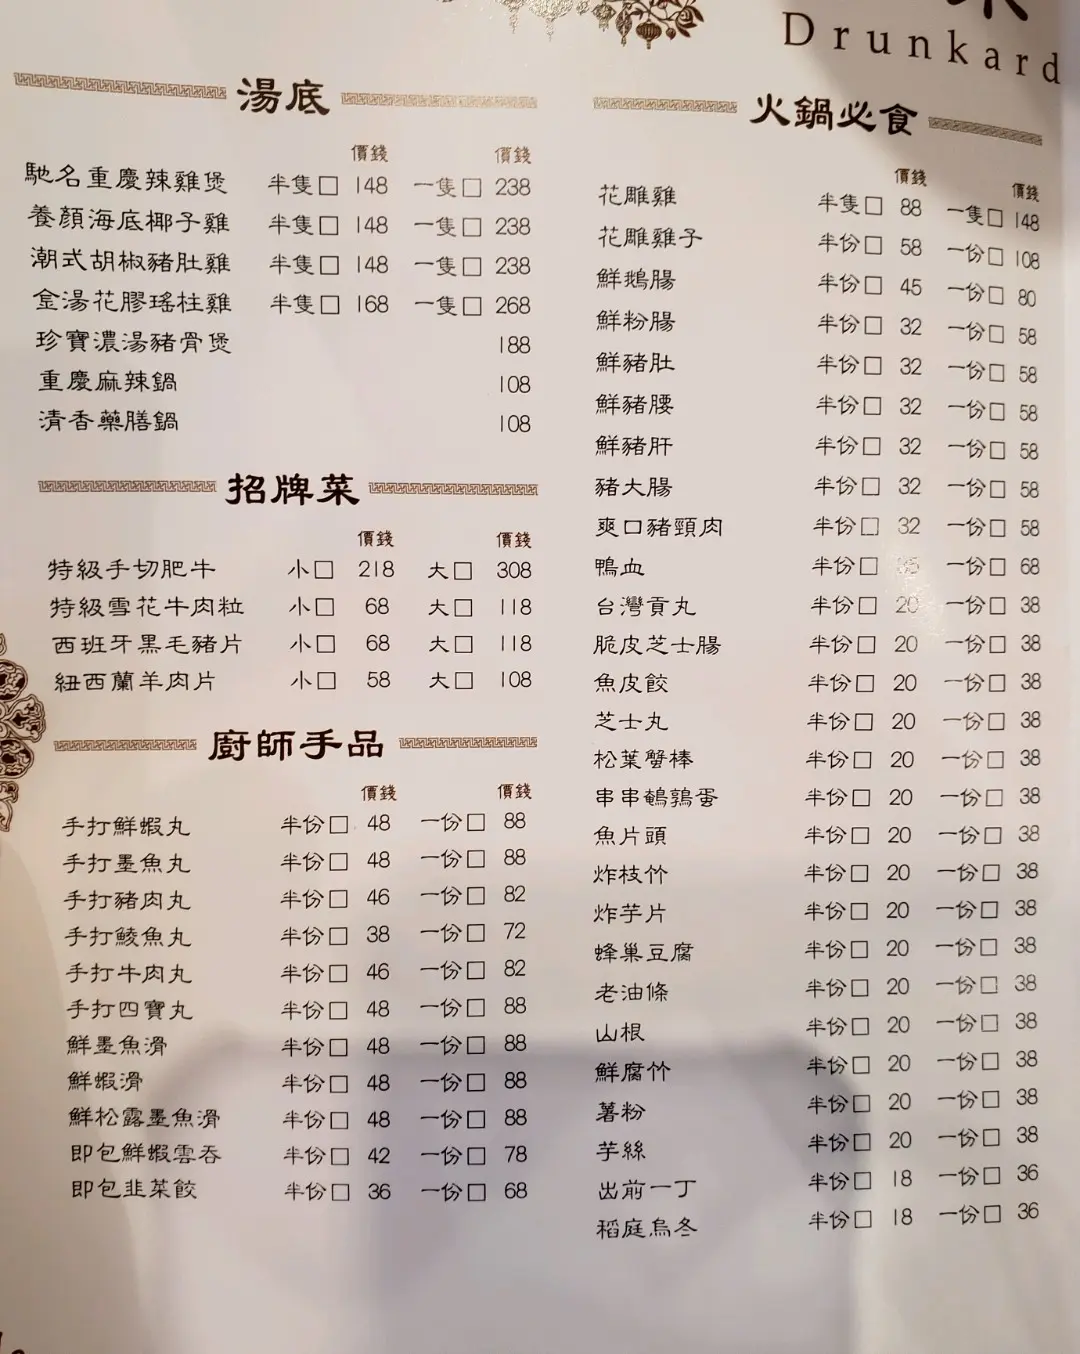 Drunkard
湯底
價錢 價錢
馳名重慶辣雞煲 半隻□ 148 一隻□ 238
養顏海底椰子雞 半隻□ 148 一隻□ 238
潮式胡椒豬肚雞 半隻□ 148 一隻□ 238
金湯花膠瑤柱雞 半隻□ 168 一隻□ 268
珍寶濃湯豬骨煲 188
重慶麻辣鍋 108
清香藥膳鍋 108
招牌菜
價錢 價錢
特級手切肥牛 小□ 218 大□ 308
特級雪花牛肉粒 小□ 68 大□ 118
西班牙黑毛豬片 小□ 68 大□ 118
紐西蘭羊肉片 小□ 58 大□ 108
廚師手品
價錢 價錢
手打鮮蝦丸 半份□ 48 一份□ 88
手打墨魚丸 半份□ 48 一份□ 88
手打豬肉丸 半份□ 46 一份□ 82
手打鯪魚丸 半份□ 38 一份□ 72
手打牛肉丸 半份□ 46 一份□ 82
手打四寶丸 半份□ 48 一份□ 88
鮮墨魚滑 半份□ 48 一份□ 88
鮮蝦滑 半份□ 48 一份□ 88
鮮松露墨魚滑 半份□ 48 一份□ 88
即包鮮蝦雲吞 半份□ 42 一份□ 78
即包韭菜餃 半份□ 36 一份□ 68
火鍋必食
價錢 價錢
花雕雞 半隻□ 88 一隻□ 148
花雕雞子 半份□ 58 一份□ 108
鮮鵝腸 半份□ 45 一份□ 80
鮮粉腸 半份□ 32 一份□ 58
鮮豬肚 半份□ 32 一份□ 58
鮮豬腰 半份□ 32 一份□ 58
鮮豬肝 半份□ 32 一份□ 58
豬大腸 半份□ 32 一份□ 58
爽口豬頸肉 半份□ 32 一份□ 58
鴨血 半份□ 一份□ 68
台灣貢丸 半份□ 20 一份□ 38
脆皮芝士腸 半份□ 20 一份□ 38
魚皮餃 半份□ 20 一份□ 38
芝士丸 半份□ 20 一份□ 38
松葉蟹棒 半份□ 20 一份□ 38
串串鵪鶉蛋 半份□ 20 一份□ 38
魚片頭 半份□ 20 一份□ 38
炸枝竹 半份□ 20 一份□ 38
炸芋片 半份□ 20 一份□ 38
蜂巢豆腐 半份□ 20 一份□ 38
老油條 半份□ 20 一份□ 38
山根 半份□ 20 一份□ 38
鮮腐竹 半份□ 20 一份□ 38
薯粉 半份□ 20 一份□ 38
芋絲 半份□ 20 一份□ 38
出前一丁 半份□ 18 一份□ 36
稻庭烏冬 半份□ 18 一份□ 36